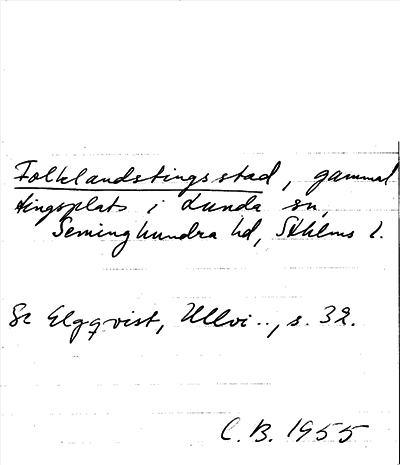 Folklandstingsstad, gammal
tingsplats i Lunda sn,
Seminghundra hd, Sthlms l.
Se Elgqvist, Ullvi.., s. 32.
C.B. 1955